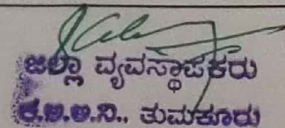 ಜಿಲ್ಲಾ ವ್ಯವಸ್ಥಾಪಕರು
ಕ.ಅ.ಅ.ನಿ., ತುಮಕೂರು